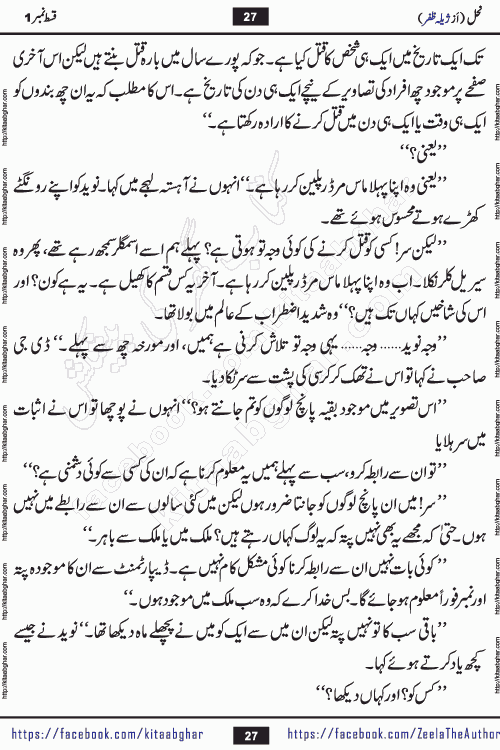 نحل (از ژیلہ ظفر) 27 قسط نمبر 1
تک ایک تاریخ میں ایک ہی شخص کا قتل کیا ہے۔ جو کہ پورے سال میں بارہ قتل بنتے ہیں لیکن اس آخری
صفحے پر موجود چھ افراد کی تصاویر کے نیچے ایک ہی دن کی تاریخ ہے۔ اس کا مطلب کہ یہ ان چھ بندوں کو
ایک ہی وقت یا ایک ہی دن میں قتل کرنے کا ارادہ رکھتا ہے۔‘‘
’’یعنی؟‘‘
’’یعنی وہ اپنا پہلا ماس مرڈر پلین کر رہا ہے۔‘‘ انہوں نے آہستہ لہجے میں کہا۔ نوید کو اپنے رونگٹے
کھڑے ہوتے محسوس ہوئے تھے۔
’’لیکن سر! کسی کو قتل کرنے کی کوئی وجہ تو ہوتی ہے؟ پہلے ہم اسے اسمگلر سمجھ رہے تھے، پھر وہ
سیریل کلر نکلا۔ اب وہ اپنا پہلا ماس مرڈر پلین کر رہا ہے۔ آخر یہ کس قسم کا کھیل ہے۔ یہ ہے کون؟ اور
اس کی شاخیں کہاں تک ہیں؟‘‘ وہ شدید اضطراب کے عالم میں بولا تھا۔
’’وجہ نوید...... وجہ...... یہی وجہ تو تلاش کرنی ہے ہمیں، اور مورخہ چھ سے پہلے۔‘‘ ڈی جی
صاحب نے کہا تو اس نے تھک کر کرسی کی پشت سے سر ٹکا دیا۔
’’اس تصویر میں موجود بقیہ پانچ لوگوں کو تم جانتے ہو؟‘‘ انہوں نے پوچھا تو اس نے اثبات
میں سر ہلایا
’’تو ان سے رابطہ کرو، سب سے پہلے ہمیں یہ معلوم کرنا ہے کہ ان کی کسی سے کوئی دشمنی ہے؟‘‘
’’سر! میں ان پانچ لوگوں کو جانتا ضرور ہوں لیکن میں کئی سالوں سے ان سے رابطے میں نہیں
ہوں۔ حتیٰ کہ مجھے یہ بھی نہیں پتہ کہ یہ لوگ کہاں رہتے ہیں؟ ملک میں یا ملک سے باہر۔‘‘
’’کوئی بات نہیں ان سے رابطہ کرنا کوئی مشکل کام نہیں ہے۔ ڈیپارٹمنٹ سے ان کا موجودہ پتہ
اور نمبر فوراً معلوم ہو جائے گا۔ بس خدا کرے کہ وہ سب ملک میں موجود ہوں۔‘‘
’’باقی سب کا تو نہیں پتہ لیکن ان میں سے ایک کو میں نے پچھلے ماہ دیکھا تھا۔‘‘ نوید نے جیسے
کچھ یاد کرتے ہوئے کہا۔
’’کس کو؟ اور کہاں دیکھا؟‘‘
https://facebook.com/kitaabghar 27 https://facebook.com/ZeelaTheAuthor